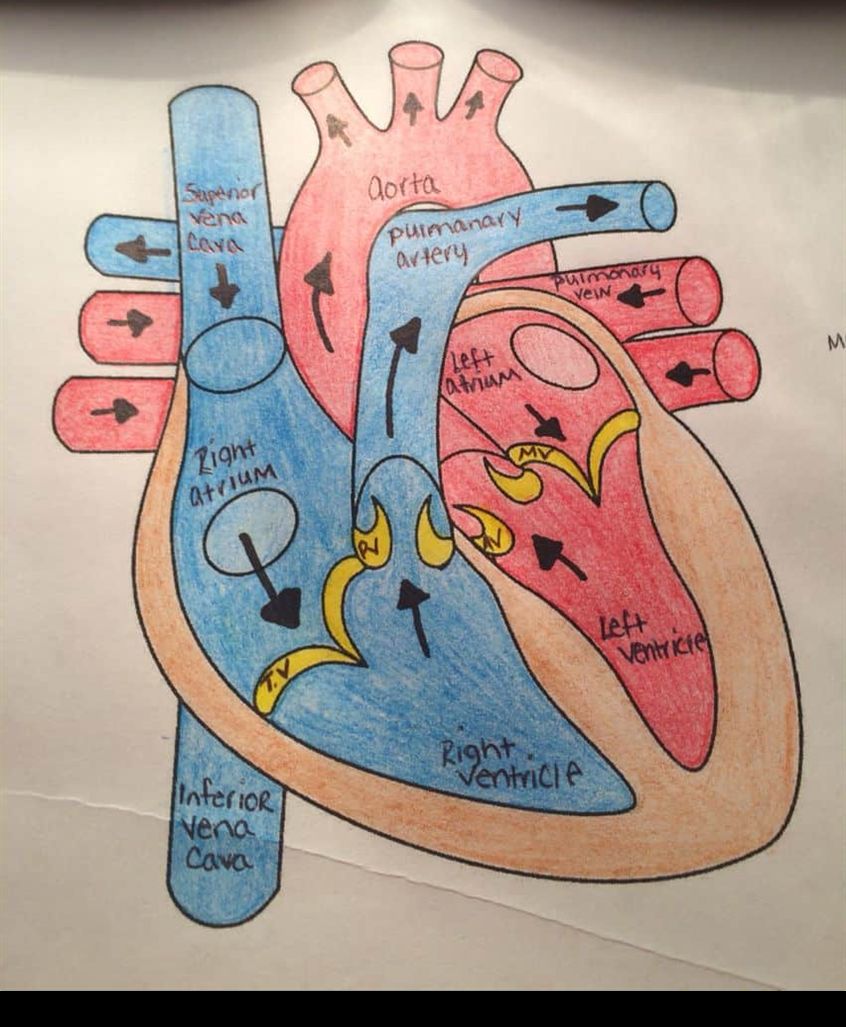 aorta
Superior
vena
Cava
pulmanary
artery
pulmonary
vein
M
Left
atrium
Right
atrium
MV
PV
AV
Left
ventricle
T.V
Right
ventricle
Inferior
vena
Cava